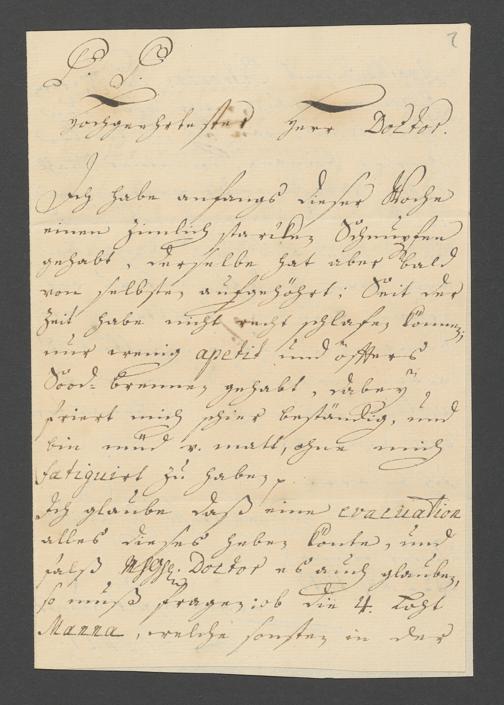 2
P. P.
Hochgeehrtester Herr Doctor.
Ich habe anfangs dieser Woche
einen zimlich starken Schnupfen
gehabt, derselbe hat aber bald
von selbsten aufgehöhrt; Seit der
Zeit habe nicht recht schlafen können,
nur wenig apetit und öffters
Sood-brennen gehabt, dabeÿ
friert mich schier beständig, und
bin müd u. matt, ohne mich
fatiguirt zu haben.
Ich glaube daß eine evacuation
alles dieses heben könte, und
falß Doctor es auch glauben,
so muß fragen: ob die 4. Loht
Manna, welche sonsten in der